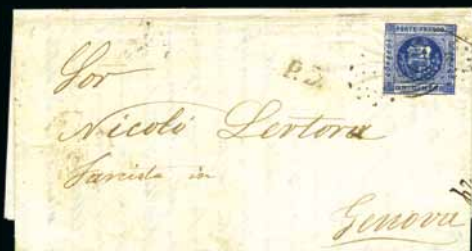 PORTE FRANCO
P.D.
Sor
Nicoló Lertora
in
Genova